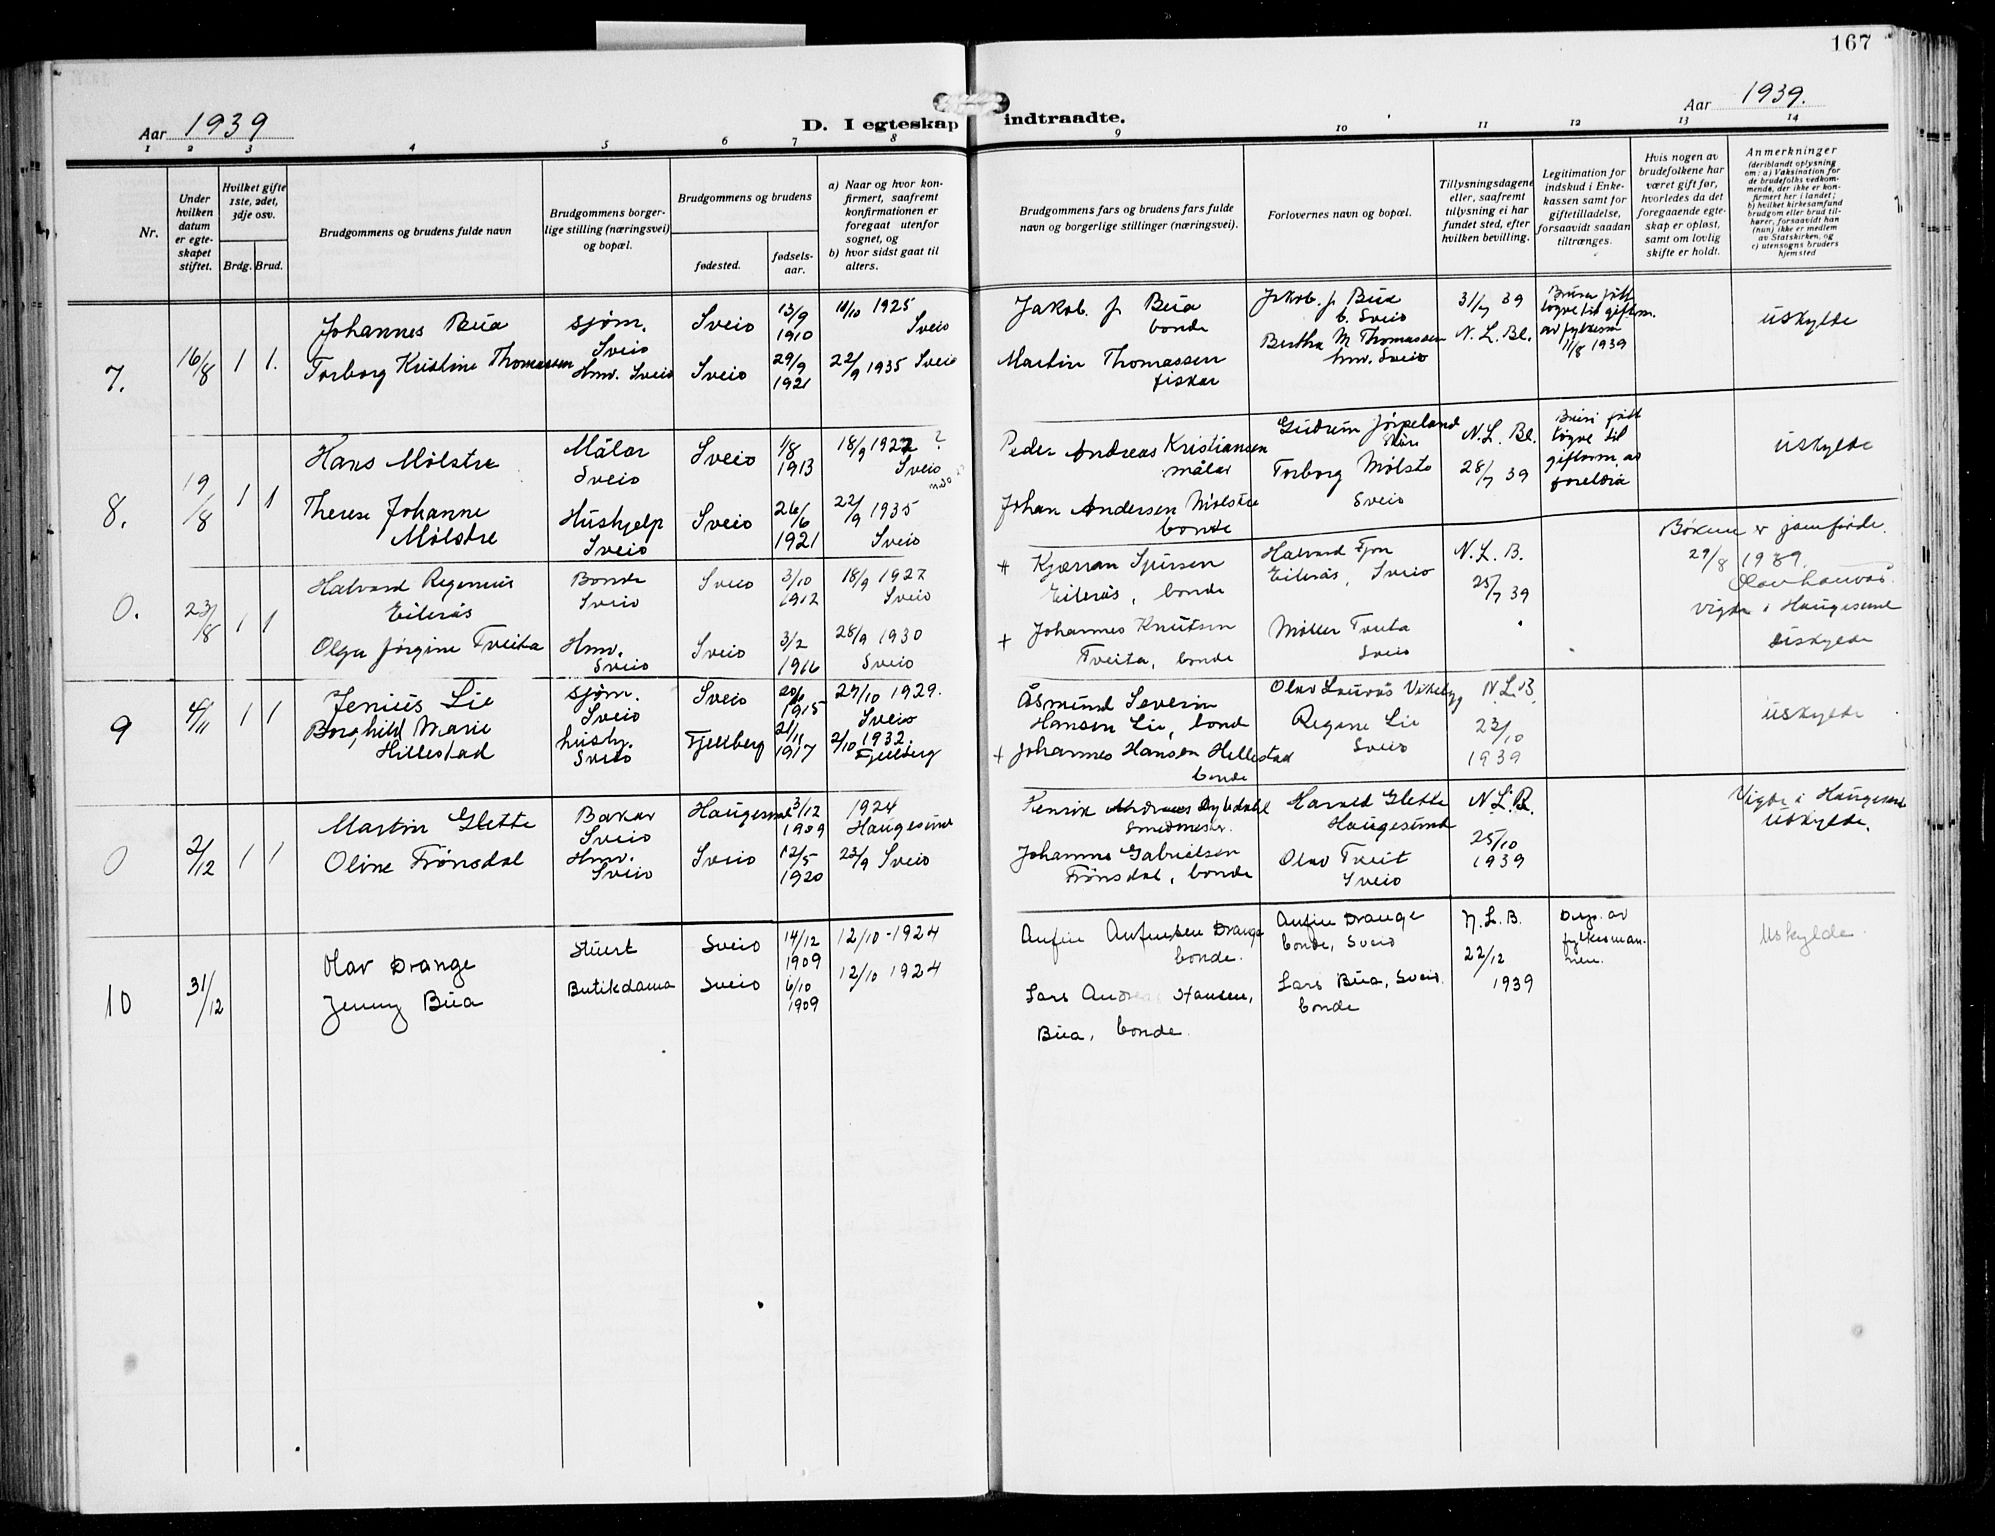 167
Aar 1939
D. I egteskap indtraadte.
Aar 1939.
1 2 3 4 5 6 7 8 9 10 11 12 13 14
Nr.
Under hvilken datum er egteskapet stiftet.
Hvilket gifte 1ste, 2det, 3dje osv.
Brdg. Brud.
Brudgommens og brudens fulde navn
Brudgommens borgerlige stilling (næringsvei) og bopæl.
Brudgommens og brudens
fødested.
fødselsaar.
a) Naar og hvor konfirmert, saafremt konfirmationen er foregaat utenfor sognet, og
b) hvor sidst gaat til alters.
Brudgommens fars og brudens fars fulde navn og borgerlige stillinger (næringsvei).
Forlovernes navn og bopæl.
Tillysningsdagene eller, saafremt tillysning ei har fundet sted, efter hvilken bevilling.
Legitimation for indskud i Enkekassen samt for giftetilladelse, forsaavidt saadan tiltrænges.
Hvis nogen av brudefolkene har været gift før, hvorledes da det foregaaende egteskap er opløst, samt om lovlig skifte er holdt.
Anmerkninger
(deriblandt oplysning om: a) Vaksination for de brudefolks vedkommende, der ikke er konfirmert her i landet; b) hvilket kirkesamfund brudgom eller brud tilhører, forsaavidt han (hun) ikke er medlem av Statskirken, og c) utensogns bruders hjemsted
7. 16/8 1 1.
Johannes Bua sjøm. Sveio Sveio 13/9 1910 1925 Sveio
Torborg Kristine Thomassen Hmv. Sveio Sveio 29/9 1921 22/9 1935 Sveio
Jakob. J. Bua bonde
Martin Thomassen fiskar
Jakob. J. Bua b. Sveio
Bertha M Thomassen hmv. Sveio
31/7 39
N. L. Bl.
av fylkesm. 11/8 1939
uskylde
8. 19/8 1 1
Hans Mølstre Målar Sveio Sveio 1/8 1913 18/9 1927 ? Sveio
Therese Johanne Mølstre Hushjelp Sveio Sveio 26/6 1921 22/9 1935 Sveio
Peder Andreas Kristiansen målar
Johan Andersen Mølstre bonde
Gudrun Jørpeland
Torborg Mølstre Sveio
N. L. Bl.
28/7 39
løyve til giftarm. av foreldra
uskylde
0. 23/8 1 1
Halvard Regenius Eilerås Bonde Sveio Sveio 3/10 1912 18/9 1927 Sveio
Olga Jørgine Tveita Hmv. Sveio Sveio 3/2 1916 28/9 1930 Sveio
Eilerås, bonde
+ Johannes Knutsen Tveita, bonde
Halvard Fjon
Eilerås, Sveio
Møller Tveita Sveio
N. L. B.
25/7 39
Bøkene er jamførde.
29/8 1939.
Vigde i Haugesund
uskylde
9 4/11 1 1
Jenius Lie sjøm. Sveio Sveio 1915 27/10 1929. Sveio
Borghild Marie Hillestad hushj. Sveio Fjellberg 21/11 1917 2/10 1932. Fjellberg
Åsmund Severin Hansen Lie, bond
+ Johannes Hansen Hillestad bonde
Regine Lie Sveio
N. L. B.
23/10 1939
uskylde
0 2/12 1 1
Martin Glette Bakar Sveio Haugesund 3/12 1909 1924 Haugesund
Oline Trønsdal Hmv. Sveio Sveio 12/5 1920 23/9 Sveio
Henrik Andreas
Smedmester.
Johannes Gabrielsen Trønsdal, bonde
Harald Glette Haugesund
Olav Tveit Sveio
N. L. B.
25/10 1939
Vigde i Haugesund
uskylde.
10 31/12
Olav Drange Stuert Sveio 14/12 1909 12/10-1924
Jenny Bua Butikdama Sveio 6/10 1909 12/10 1924
Anfin Anfinsen Drange bonde.
Lars Andreas Hansen,
Bua, bonde.
Anfin Drange bonde, Sveio
Lars Bua, Sveio. bonde
N. L. B.
22/12 1939
Disp. av fylkesmannen.
Uskylde.